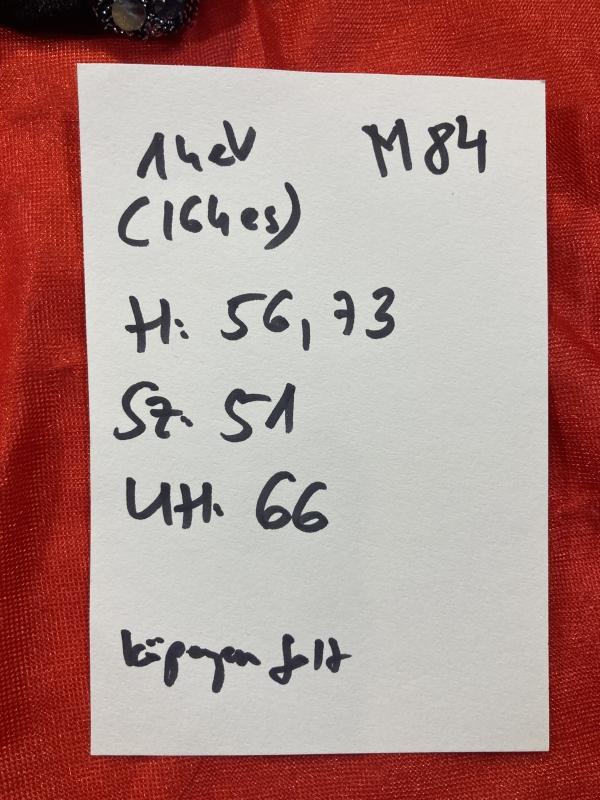 14 év M84
(164es)
H: 56,73
Sz: 51
UH: 66
köpenyen folt